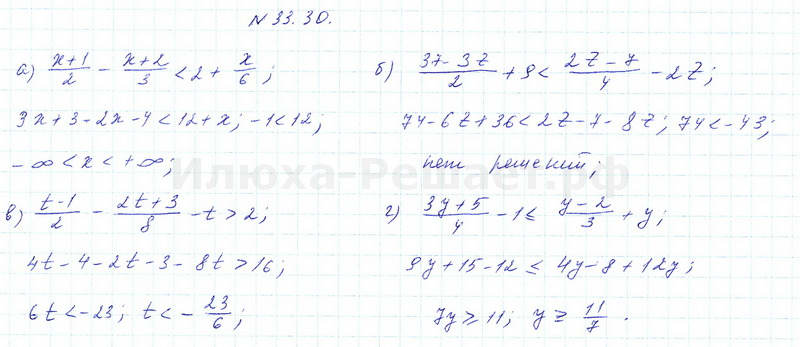 N 33.30.
а) (x+1)/2 - (x+2)/3 < 2 + x/6;
3x+3-2x-4<12+x; -1<12;
-∞<x<+∞;
б) (37-3z)/2 + 9 < (2z-7)/4 - 2z;
74-6z+36<2z-7-8z; 74<-43;
нет решений;
в) (t-1)/2 - (2t+3)/8 - t > 2;
4t-4-2t-3-8t>16;
6t<-23; t<-23/6;
г) (3y+5)/4 - 1 ≤ (y-2)/3 + y;
9y+15-12 ≤ 4y-8+12y;
7y≥11; y≥11/7.
Илюха-Решает.рф